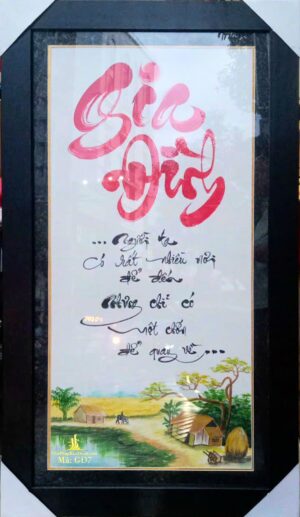 Gia
Đình
... Người ta
có rất nhiều nơi
để đến
Nhưng chỉ có
một chốn
để quay về...
Mã: GĐ7